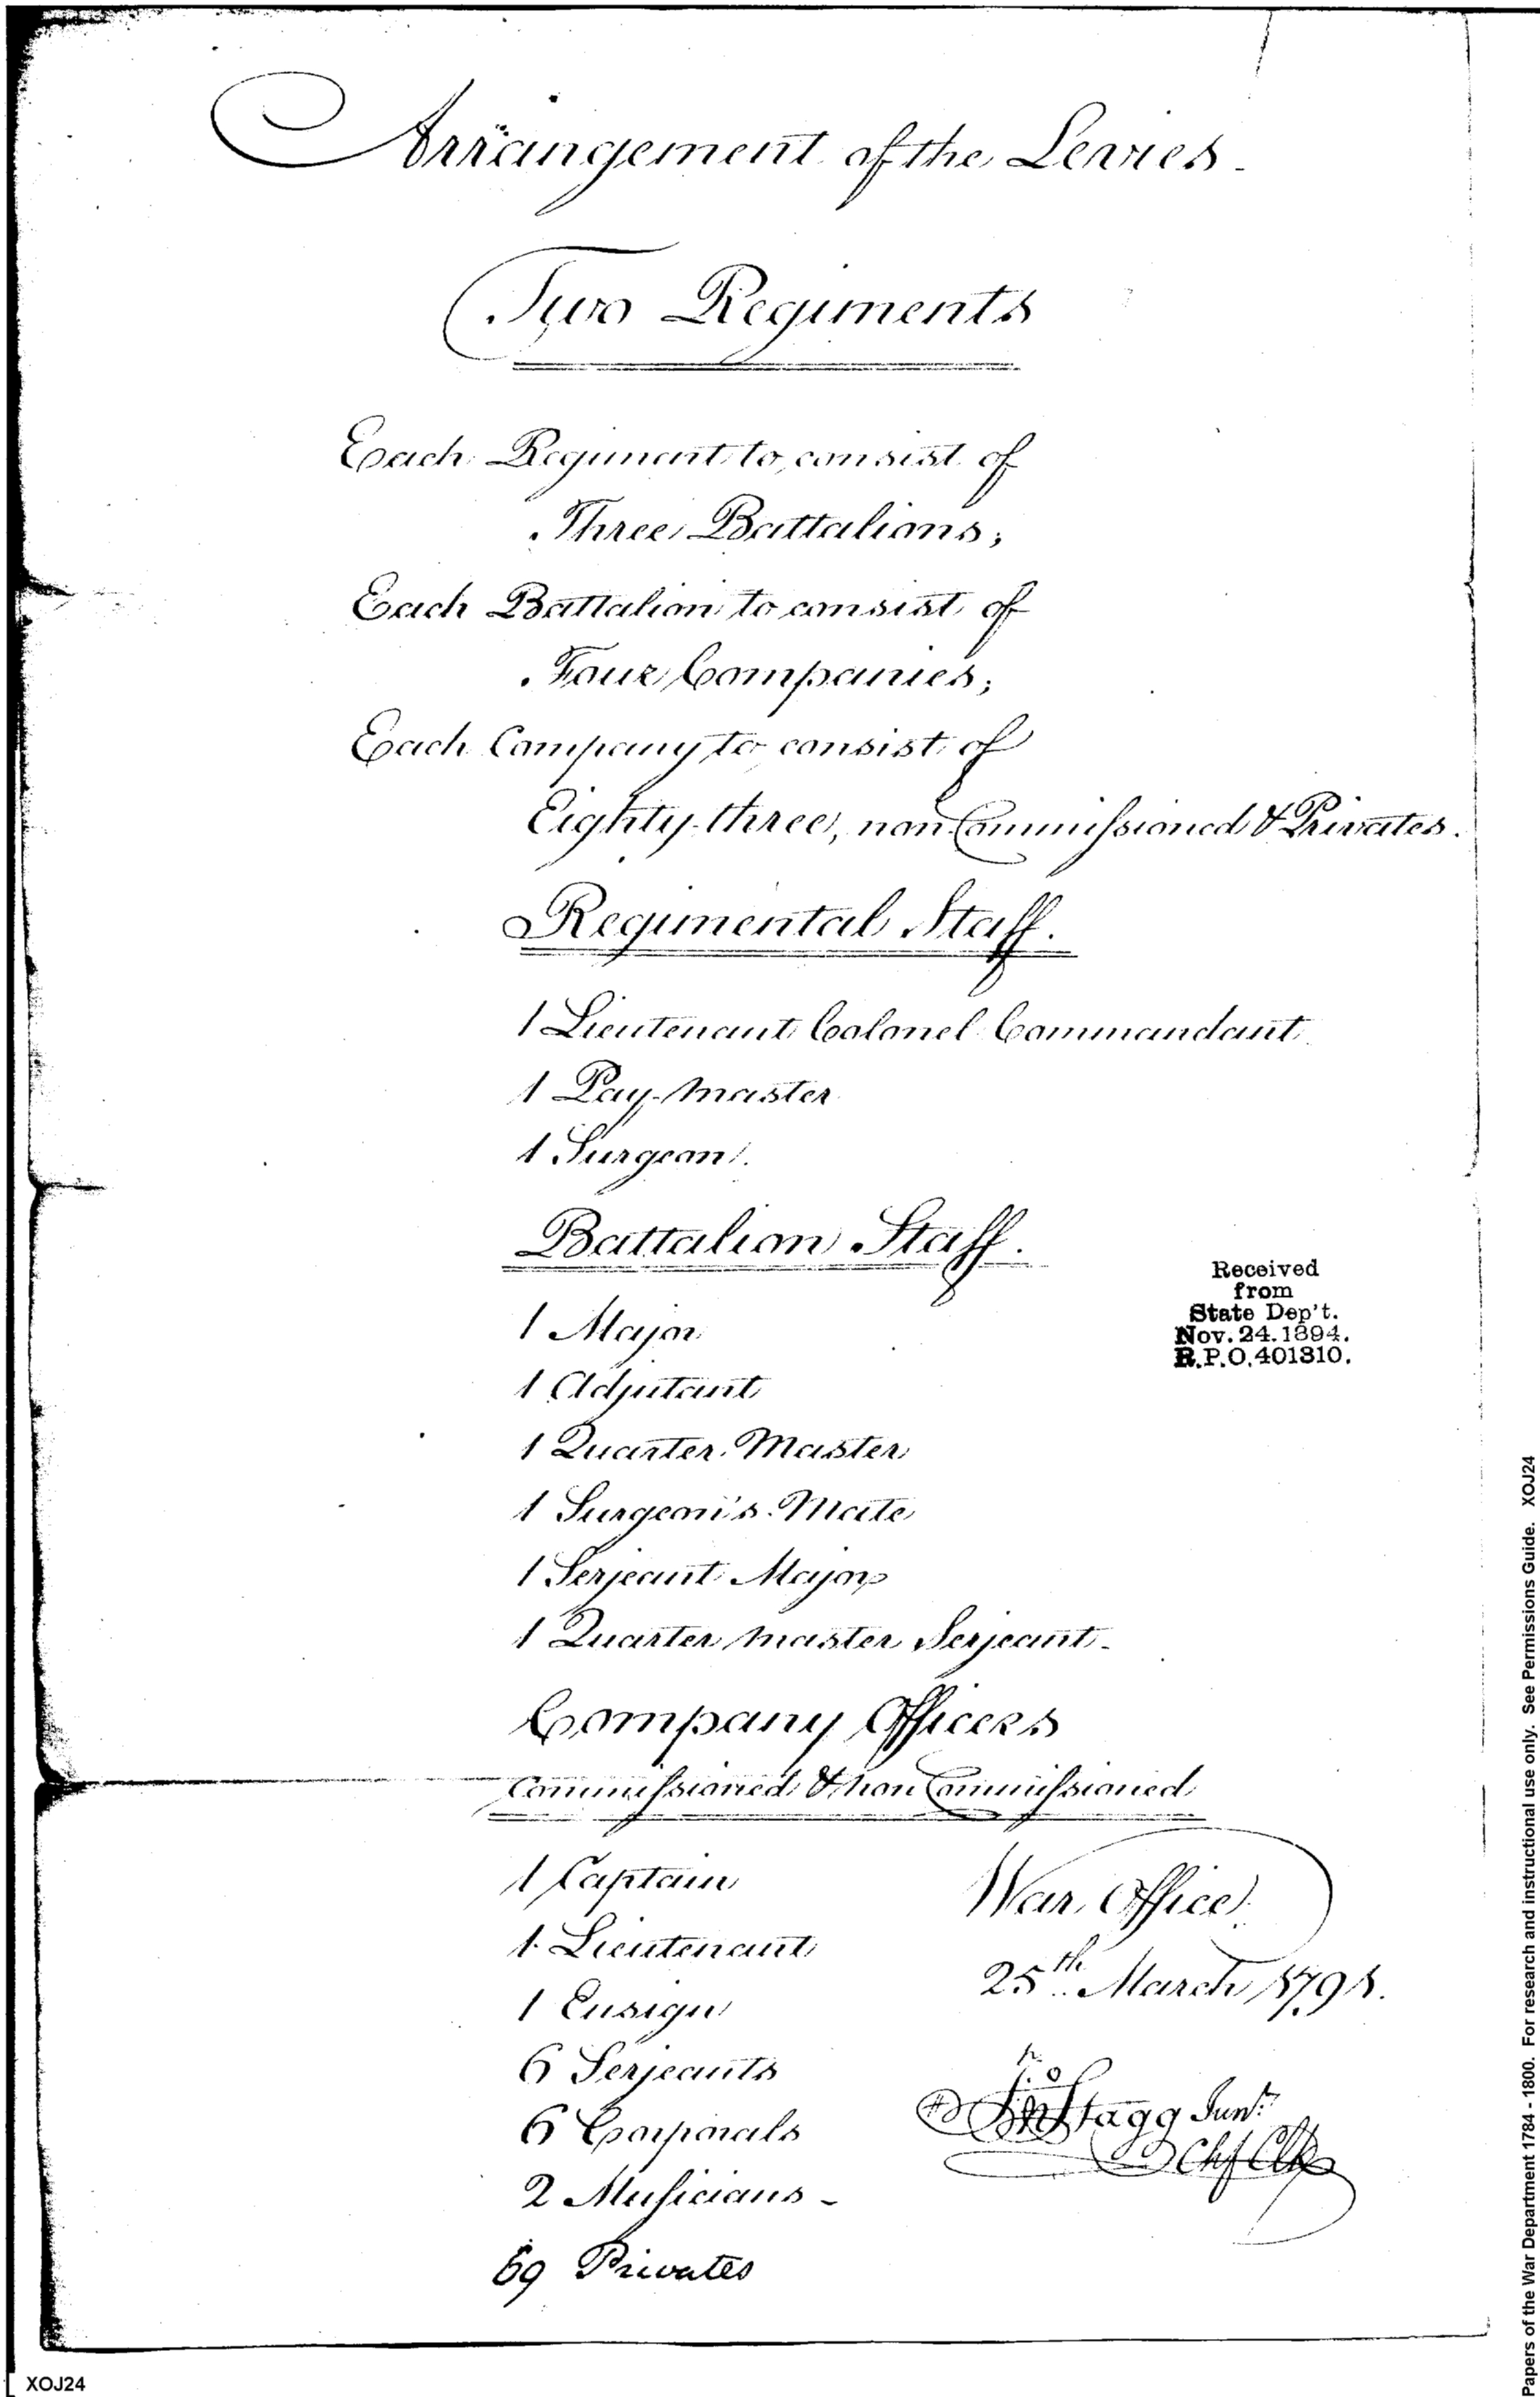 Arrangement of the Levies.
Two Regiments
Each Regiment to consist of
Three Battalions;
Each Battalion to consist of
Four Companies;
Each Company to consist of
Eighty-three, non Commissioned & Privates.
Regimental Staff.
1 Lieutenant Colonel Commandant
1 Pay-Master
1 Surgeon.
Battalion Staff.
1 Major
1 Adjutant
1 Quarter Master
1 Surgeon's Mate
1 Serjeant Major
1 Quarter Master Serjeant
Received
from
State Dep't.
Nov. 24. 1894.
R.P.O. 401310.
Company Officers
Commissioned & non Commissioned
1 Captain
1 Lieutenant
1 Ensign
6 Serjeants
6 Corporals
2 Musicians
69 Privates
War Office
25th March 1791.
Jno Stagg Junr.
Chf Clk
Papers of the War Department 1784 - 1800. For research and instructional use only. See Permissions Guide. XOJ24
XOJ24